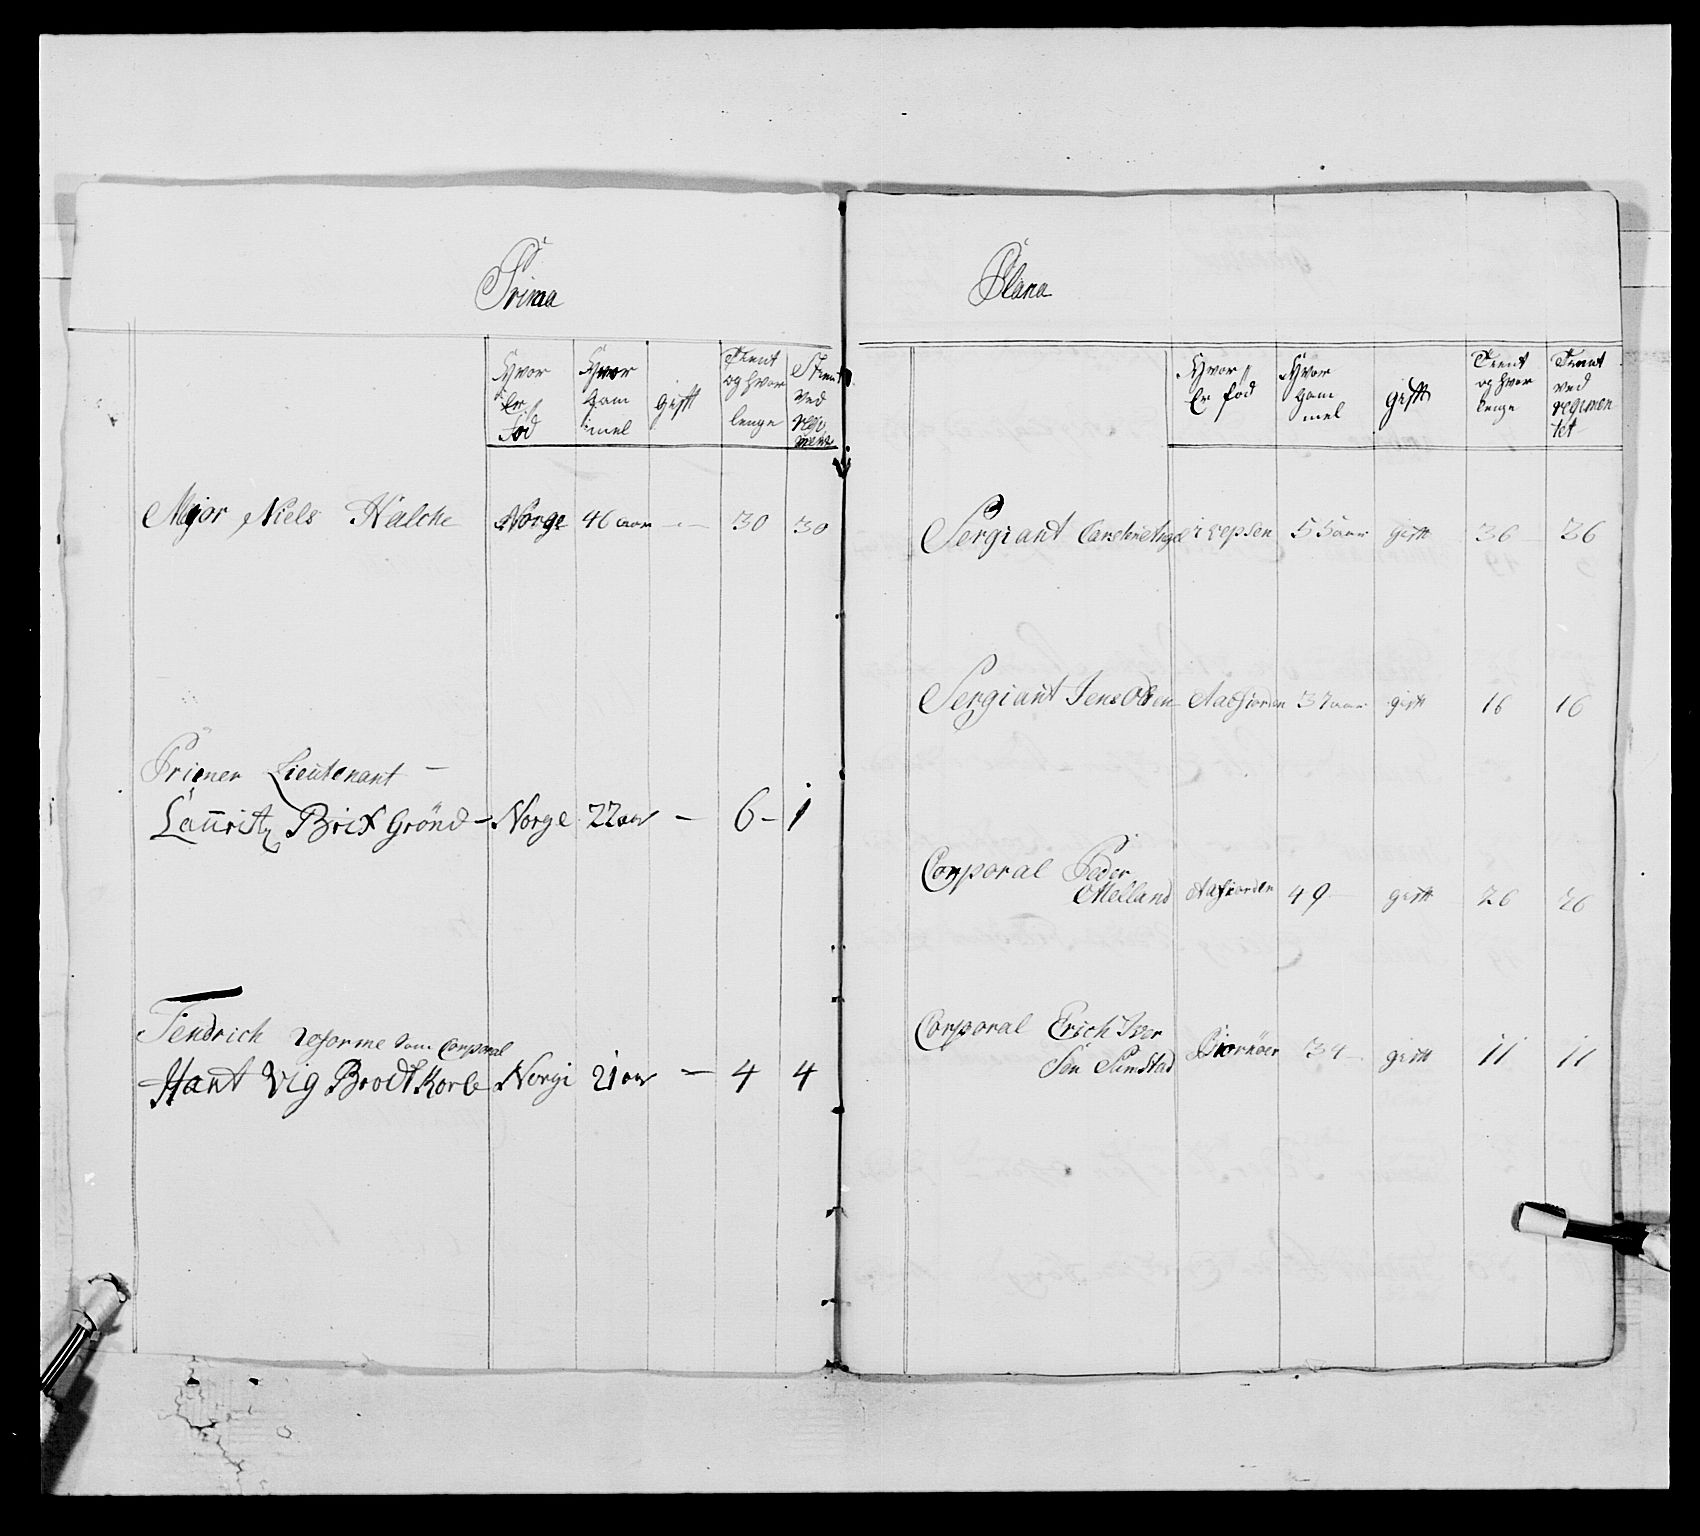 Prima
Hvor Er fød
Hvor gam mel
gift
Tient og hvor lenge
Tient ved regi ment
Major Niels Halche Norge 46 aar - 30 30
Priemer Lieutenant -
Lauritz Brix Grönd - Norge 22 aar - 6 - 1
Fendrich reforme Som Corporal
Hant Vig Brodt Korb Norgi 21 aar - 4 4
Plana
Hvor Er fød
Hvor gam mel
gift
Tient og hvor lenge
Tient ved regimen tet
Sergiant Carsten 55 aar gift 36 36
Sergiant Jens Olsen Aafiorden 37 aar gift 16 16
Corporal Peder
Melland Aafiorden 49 gift 26 26
Corporal Erich Iver
Sön Simstad Biornöer 34 - gift 11 11